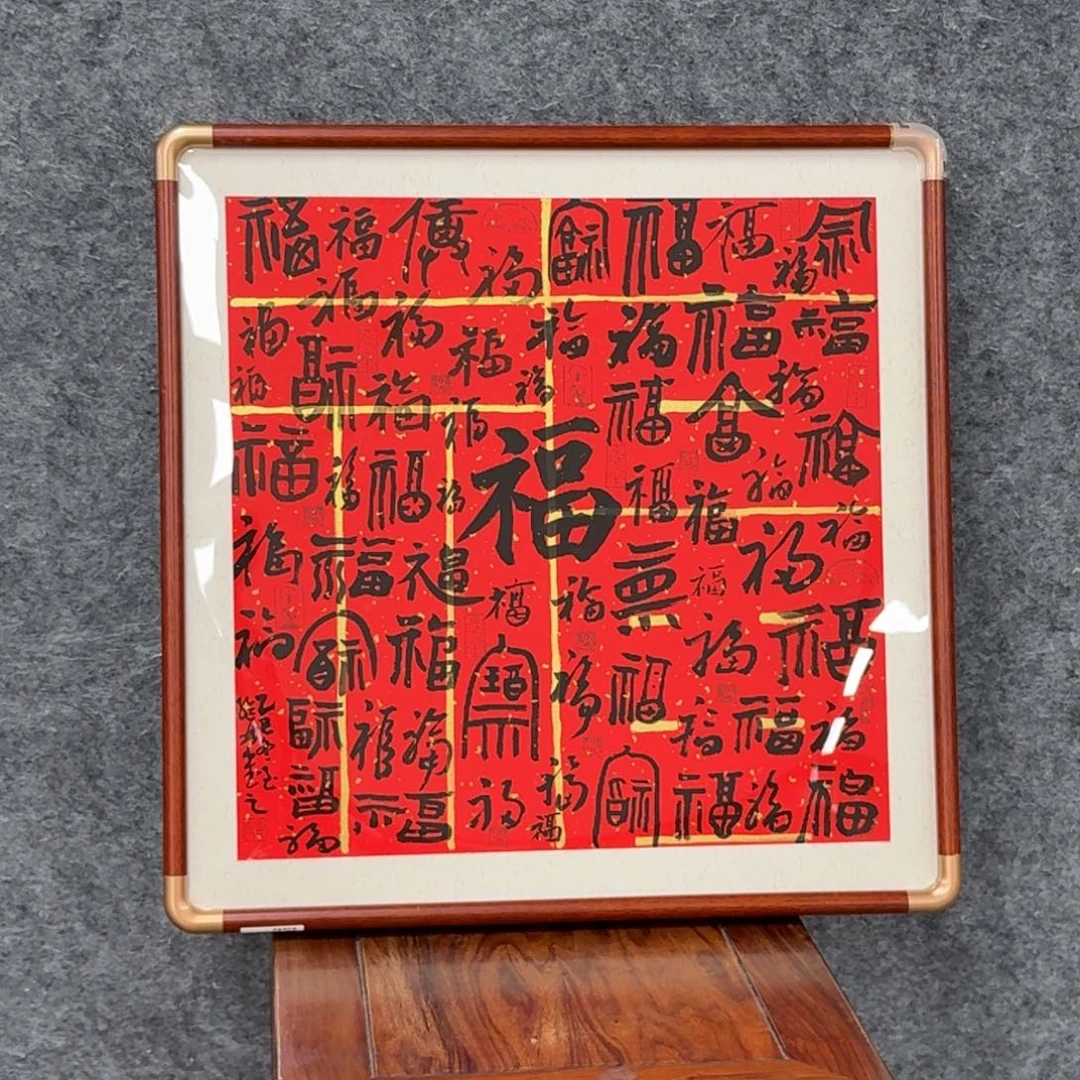 福 福 福 福 福 福 福 福
福 福 福
福 福 福 福 福 福 福
福 福 福 福 福
福 福 福 福 福 福
福 福 福 福 福 福 福
福 福 福 福 福 福 福
福 福 福 福 福 福
福 福 福 福 福 福
福 福 福 福 福 福
福 福 福 福 福 福 福
福 福
乙巳